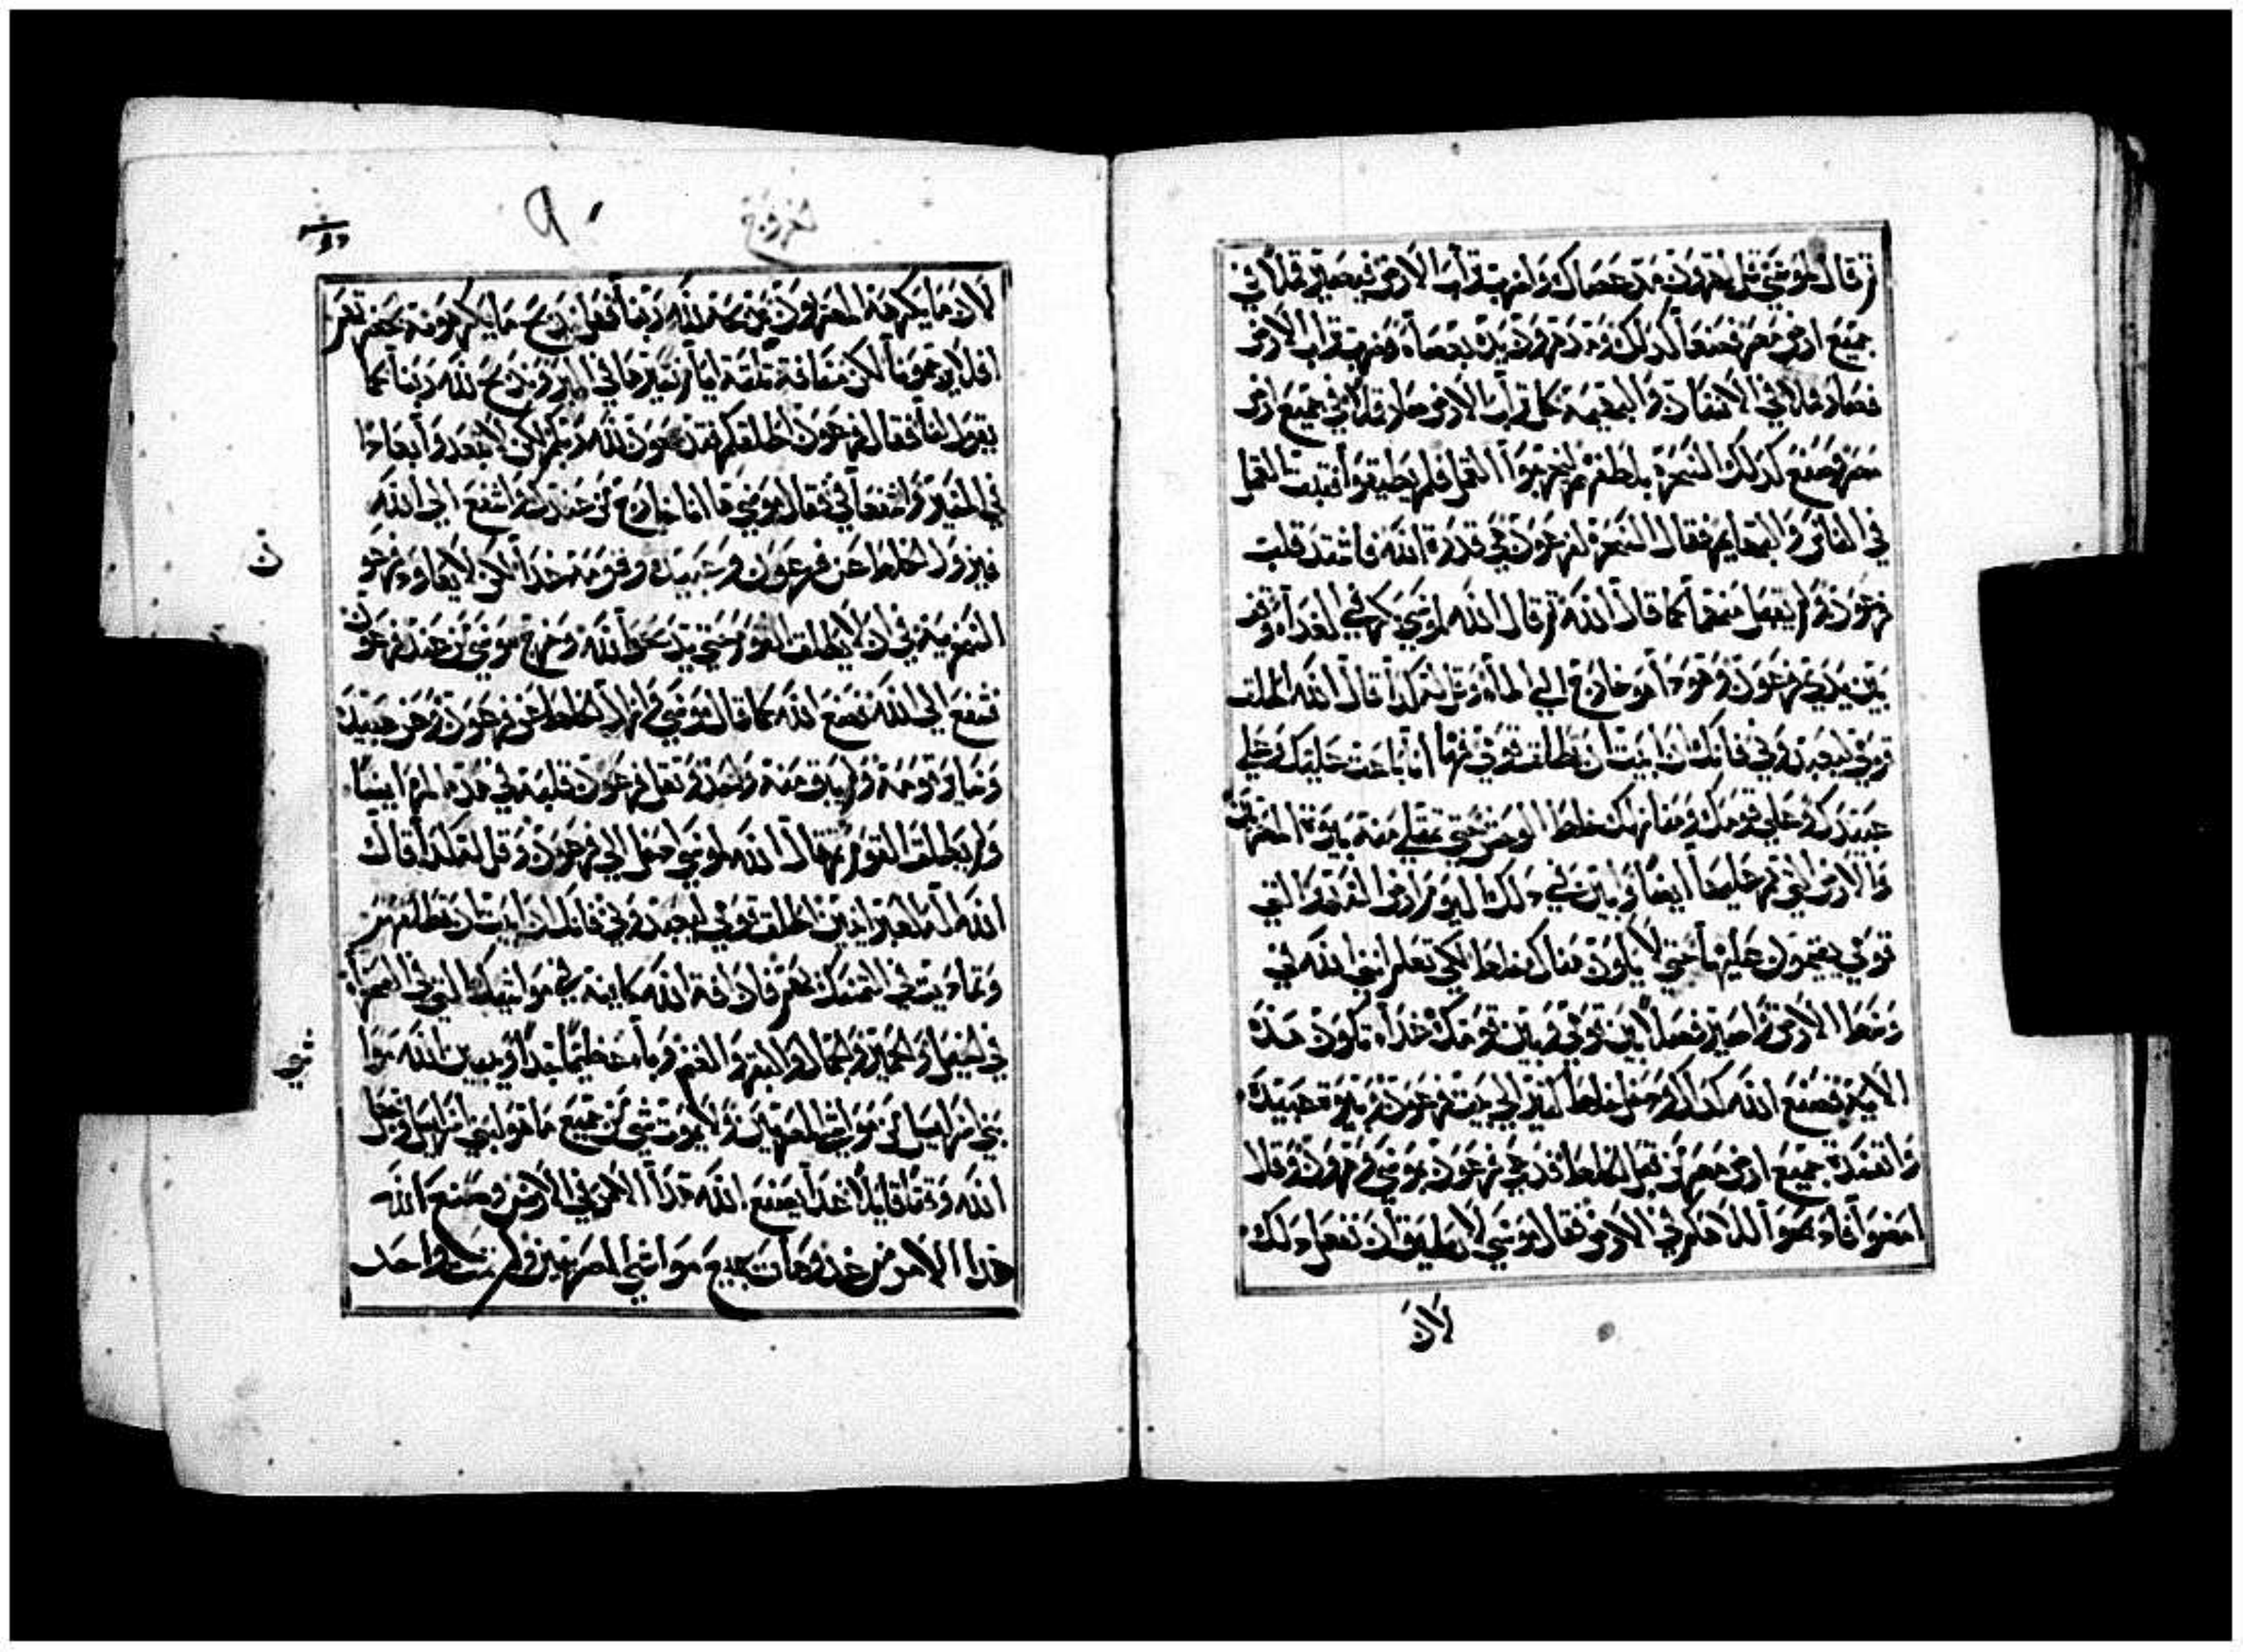 ثم قال لموسي قل لهرون مد عصاك واضرب تراب الارض فيصير قملا في
جميع ارض مصر فصنعا كذلك ومد هرون يده بعصاه وضرب تراب الارض
فصار قملا في الانسان والبهيمة كل تراب الارض صار قملا في جميع ارض
مصر وصنع كذلك السحرة بلطفهم ليخرجوا القمل فلم يطيقوا فثبت القمل
في الناس والبهايم فقال السحرة لفرعون هي قدرة الله فاشتد قلب
فرعون ولم يقبل منهما كما قال الله ثم قال الله لموسي بكر في الغداه وقف
بين يدي فرعون وهوذا هو خارج الي الماء وقل له كذا قال الله اطلق
قومي ليعبدوني فانك ان ابيت ان تطلق قومي فها انا باعث عليك وعلي
عبيدك وعلي قومك ومنازلك خلط الوحش حتي تمتلي منه بيوت المصريين
والارض التي هم عليها ايضا وابين في ذلك اليوم ارض التي
قومي يقيمون عليها حتي لا يكون هناك خلط لكي تعلم اني الله في
وسط الارض واصير فصلا بين قومي وبين قومك غدا تكون هذه
الاية فصنع الله كذلك ودخل خلط كثير الي بيت فرعون وبيوت عبيده
وانفسدت جميع ارض مصر من قبل الخلط فدعي فرعون بموسي وهرون وقال
امضوا فاذبحوا لالاهكم في الارض فقال موسي لا نطيق ان نفعل ذلك
لان
خروج
لان ما يكرهه المصريون نذبحه لله ربنا فان ذبحنا ما يكرهونه بحضرتهم
افلا يرجمونا لكن مسافة ثلثة ايام نسير في البر ونذبح لله ربنا كما
يقول لنا فقال فرعون اطلقكم تذبحون لله ربكم لكن لا تبعدوا ابعادا
في المسير واشفعا في فقال موسي ها انا خارج من عندك واشفع الي الله
فيزول الخلط عن فرعون وعبيده وقومه غدا لكن لا يعاود فرعون
السخرية في ان لا يطلق القوم حتي يذبحوا لله وخرج موسي من عند فرعون
شفع الي الله فصنع الله كما قال موسي وازال الخلط عن فرعون وعن عبيده
وساير قومه ولم يبق منه واحد وثقل فرعون قلبه في هذه المرة ايضا
ولم يطلق القوم ثم قال الله لموسي ادخل الي فرعون وقل له كذا قال
الله اله العبرانيين اطلق قومي ليعبدوني فانك ان ابيت ان تطلقهم
وتماديت في التمسك بهم فان افة الله كاينة في مواشيك التي في الصحرا
في الخيل والحمير والجمال والبقر والغنم وبا عظيما جدا ويميز الله مواشي
بني اسراييل من مواشي المصريين ولا يموت شي من جميع ما هو لبني اسراييل وجعل
الله وقتا قايلا غدا يصنع الله هذا الامر في الارض وصنع الله
هذا الامر من غد ومات جميع مواشي المصريين ولم يمت واحد